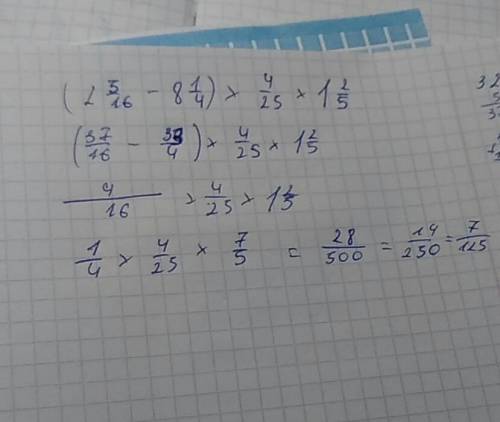 (2 5/16 - 8 1/4) × 4/25 × 1 2/5
(37/16 - 33/4) × 4/25 × 1 2/5
4/16 × 4/25 × 1 2/5
1/4 × 4/25 × 7/5 = 28/500 = 14/250 = 7/125
32